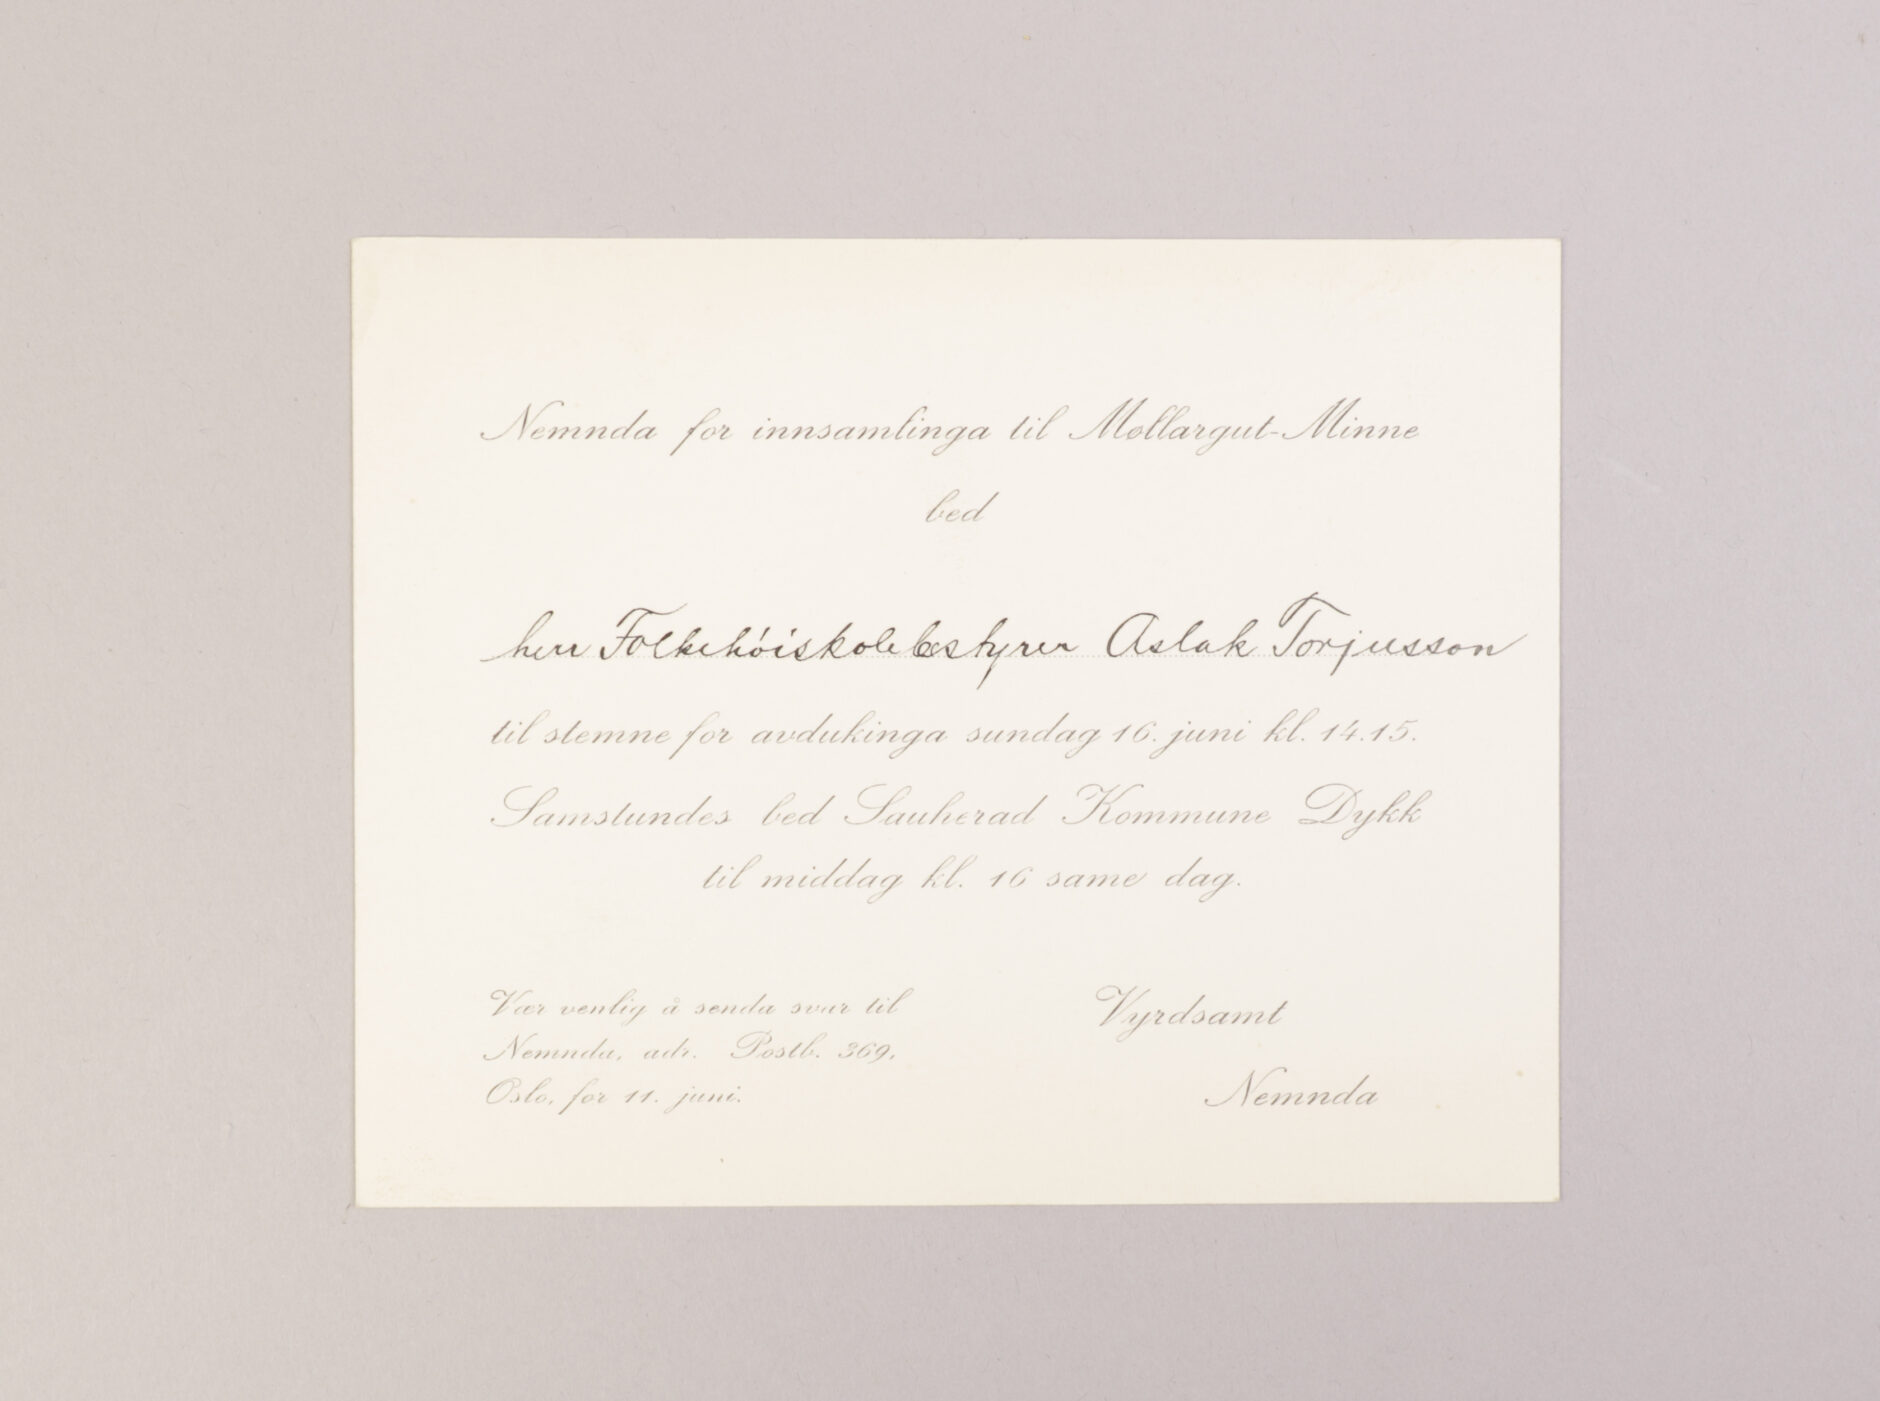 Nemnda for innsamlinga til Møllargut-Minne
bed
herr Folkehóiskolebestyrer Aslak Torjusson
til stemne for avdukinga sundag 16. juni kl. 14.15.
Samstundes bed Sauherad Kommune Dykk
til middag kl. 16 same dag.
Vær venlig å senda svar til
Nemnda, adr. Postb. 369,
Oslo, før 11. juni.
Vyrdsamt
Nemnda